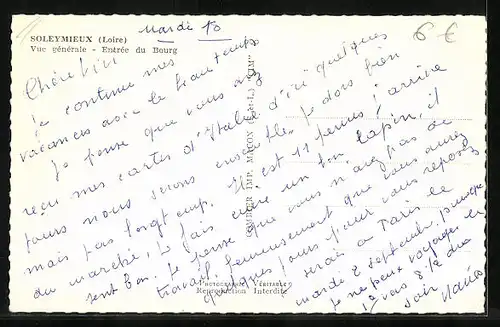 SOLEYMIEUX (Loire)
Vue générale - Entrée du Bourg
Mardi 10
6 €
je continue mes
vacances avec le beau temps
Je pense que vous avez
reçu mes cartes d'Italie d'ici quelques
jours nous serons Je dors bien
mais pas longtemps. Il est 11 heures j'arrive
du marché, je fais cuire un bon lapin, il
sent bon. Je pense que vous n'avez pas de
travail, heureusement que vous aurez
quelques jours pour vous reposer
serais à Paris le
mardi 2 septembre, puisque
je ne peux voyager le
1er vers 8 h du
soir
COMBIER IMP. MACON (S.-&-L.) "CIM"
PHOTOGRAPHIE VÉRITABLE
Reproduction Interdite